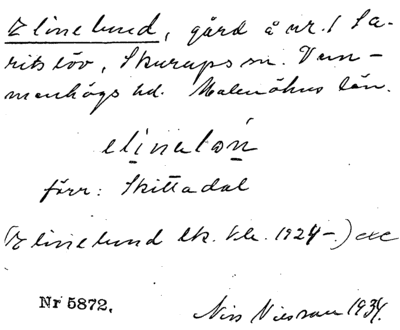 Elinelund, gård å nr. 1 Sa-
ritslöv, Skurups sn. Vem-
menhögs hd. Malmöhus län.
elinalón
förr: Skittadal
(Elinelund Ek. kbl. 1924-.)
Nr 5872.
Nils Nilsson 1934.